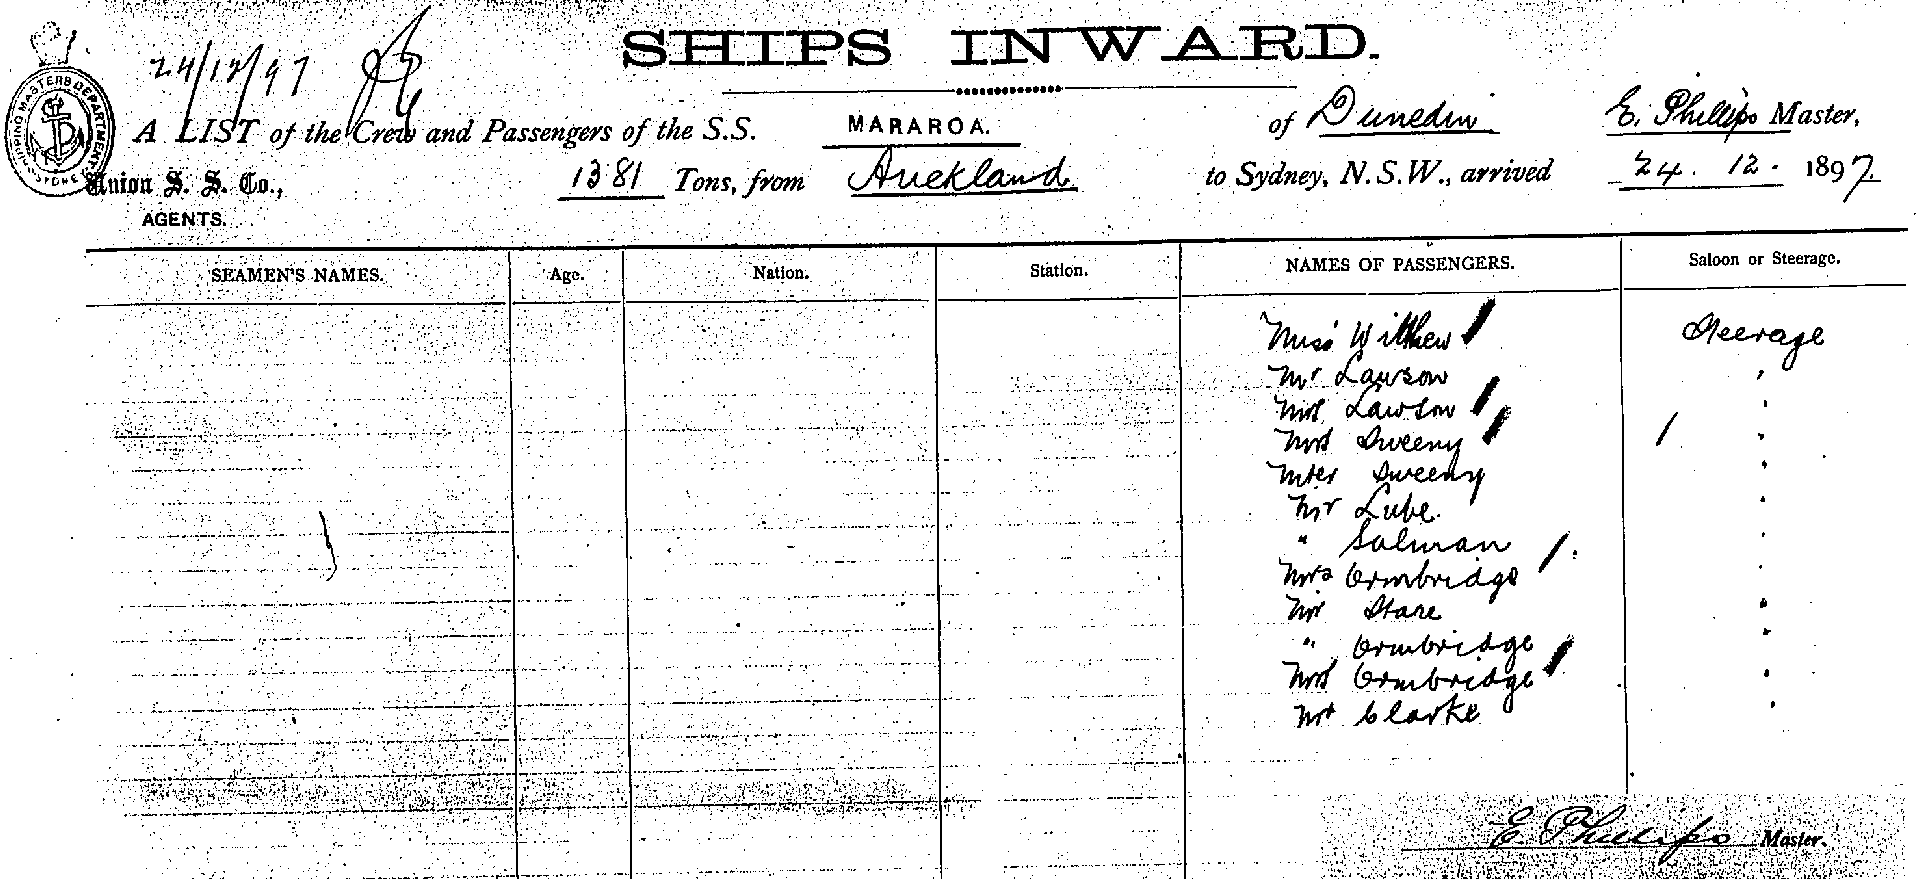 SHIPS INWARD.
24/12/97
SHIPPING MASTERS DEPARTMENT
A LIST of the Crew and Passengers of the S.S. MARAROA. of Dunedin E. Phillips Master,
Union S. S. Co., 1381 Tons, from Auckland to Sydney, N.S.W., arrived 24. 12. 1897.
AGENTS.
SEAMEN'S NAMES. Age. Nation. Station. NAMES OF PASSENGERS. Saloon or Steerage.
Miss Steerage
Mr Lawson "
Mrs Lawson "
Mrs Sweeny "
Mster Sweeny "
Mr Lube. "
" Salman "
Mrs Ormbridge "
Mr Stare "
" Ormbridge "
Mrs Ormbridge "
Mr Clarke "
E. Phillips Master.